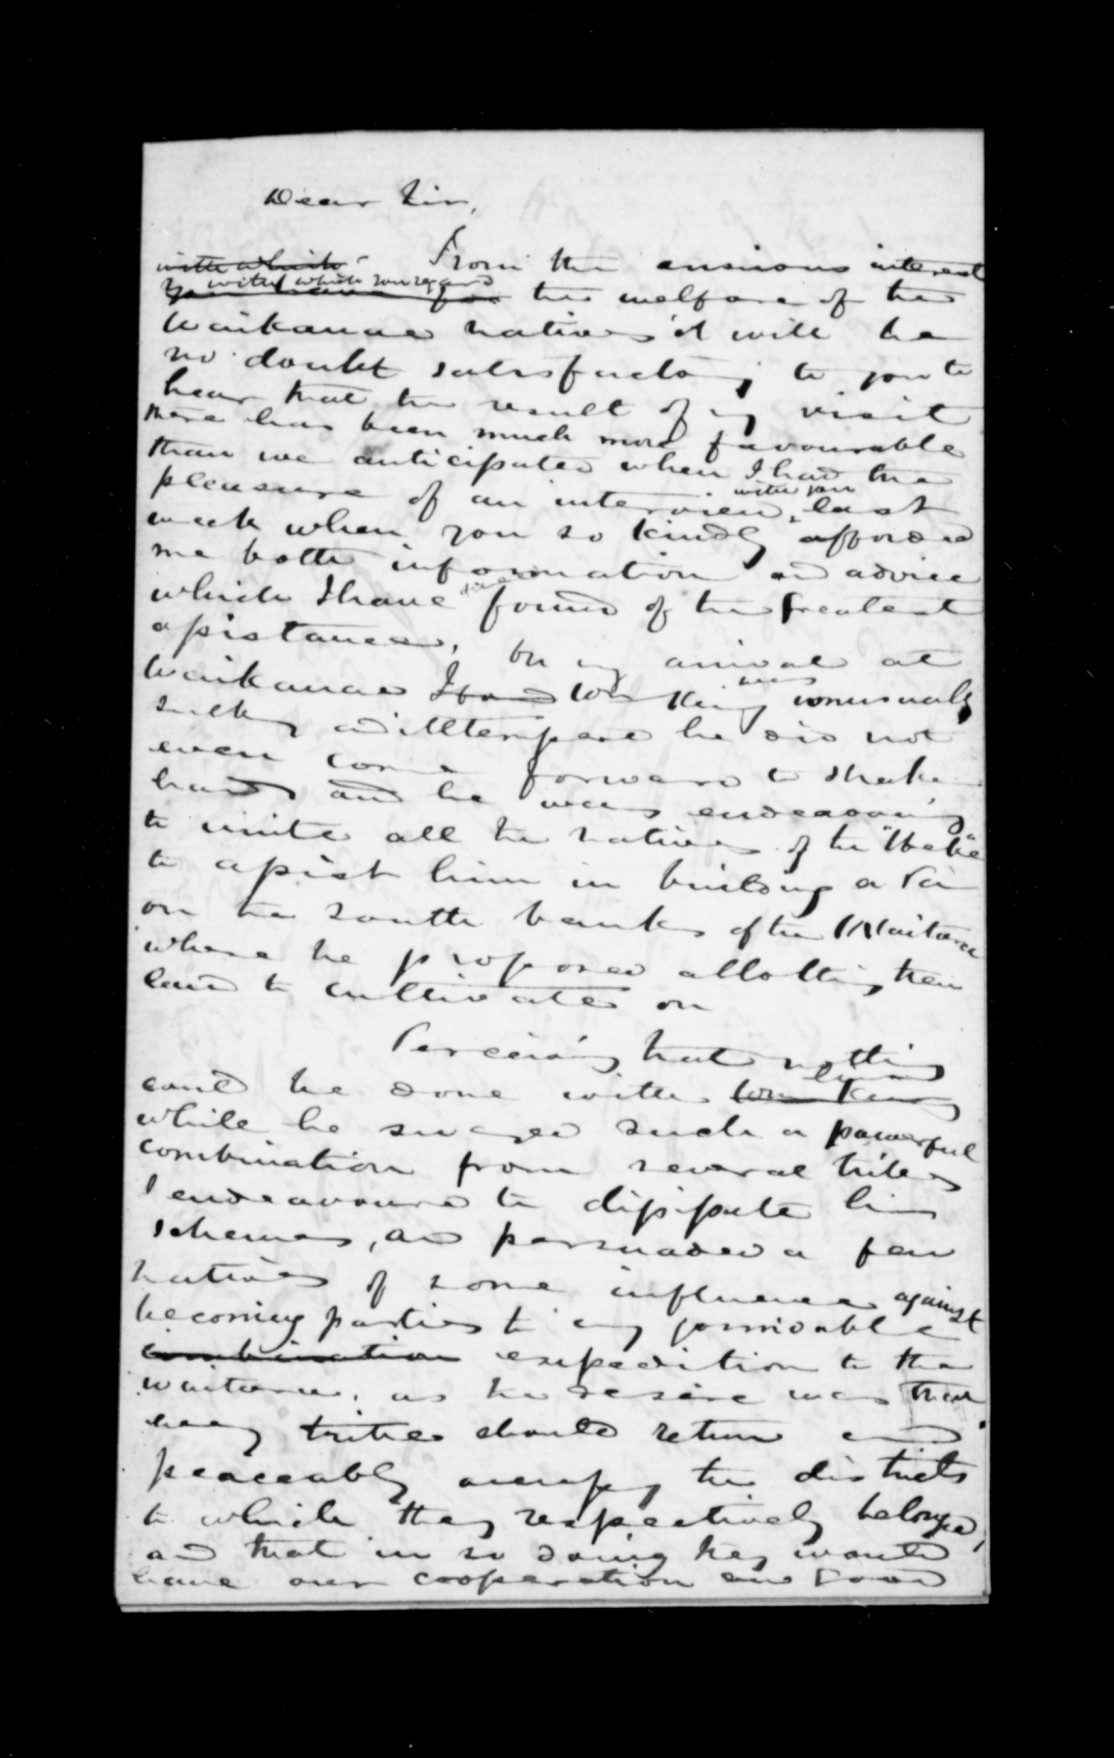 Dear Sir,
From the anxious interest
with which
with which you regard
you have for the welfare of the
Waikanae natives it will be
no doubt satisfactory to you to
hear that the result of my visit
there has been much more favourable
than we anticipated when I had the
pleasure of an interview with you last
week when you so kindly afforded
me both information and advice
which I have found of the greatest
assistance. On my arrival at
Waikanae I found Wm King was unusually
sulky and illtempered he did not
even come forward to shake
hands and he was endeavouring
to unite all the natives of the "Heke"
to assist him in building a Pa
on the south bank of the Waitara
where he proposed allotting them
land to cultivate on
Perceiving that nothing
could be done with Wm King him
while he swayed such a powerful
combination from several tribes
I endeavoured to dissipate his
schemes, and persuaded a few
natives of some influence against
becoming parties to any formidable
combination expedition to the
Waitara, as the desire was that
tribes should return and
peaceably occupy the districts
to which they respectively belonged,
and that in so doing they would
have our cooperation and good